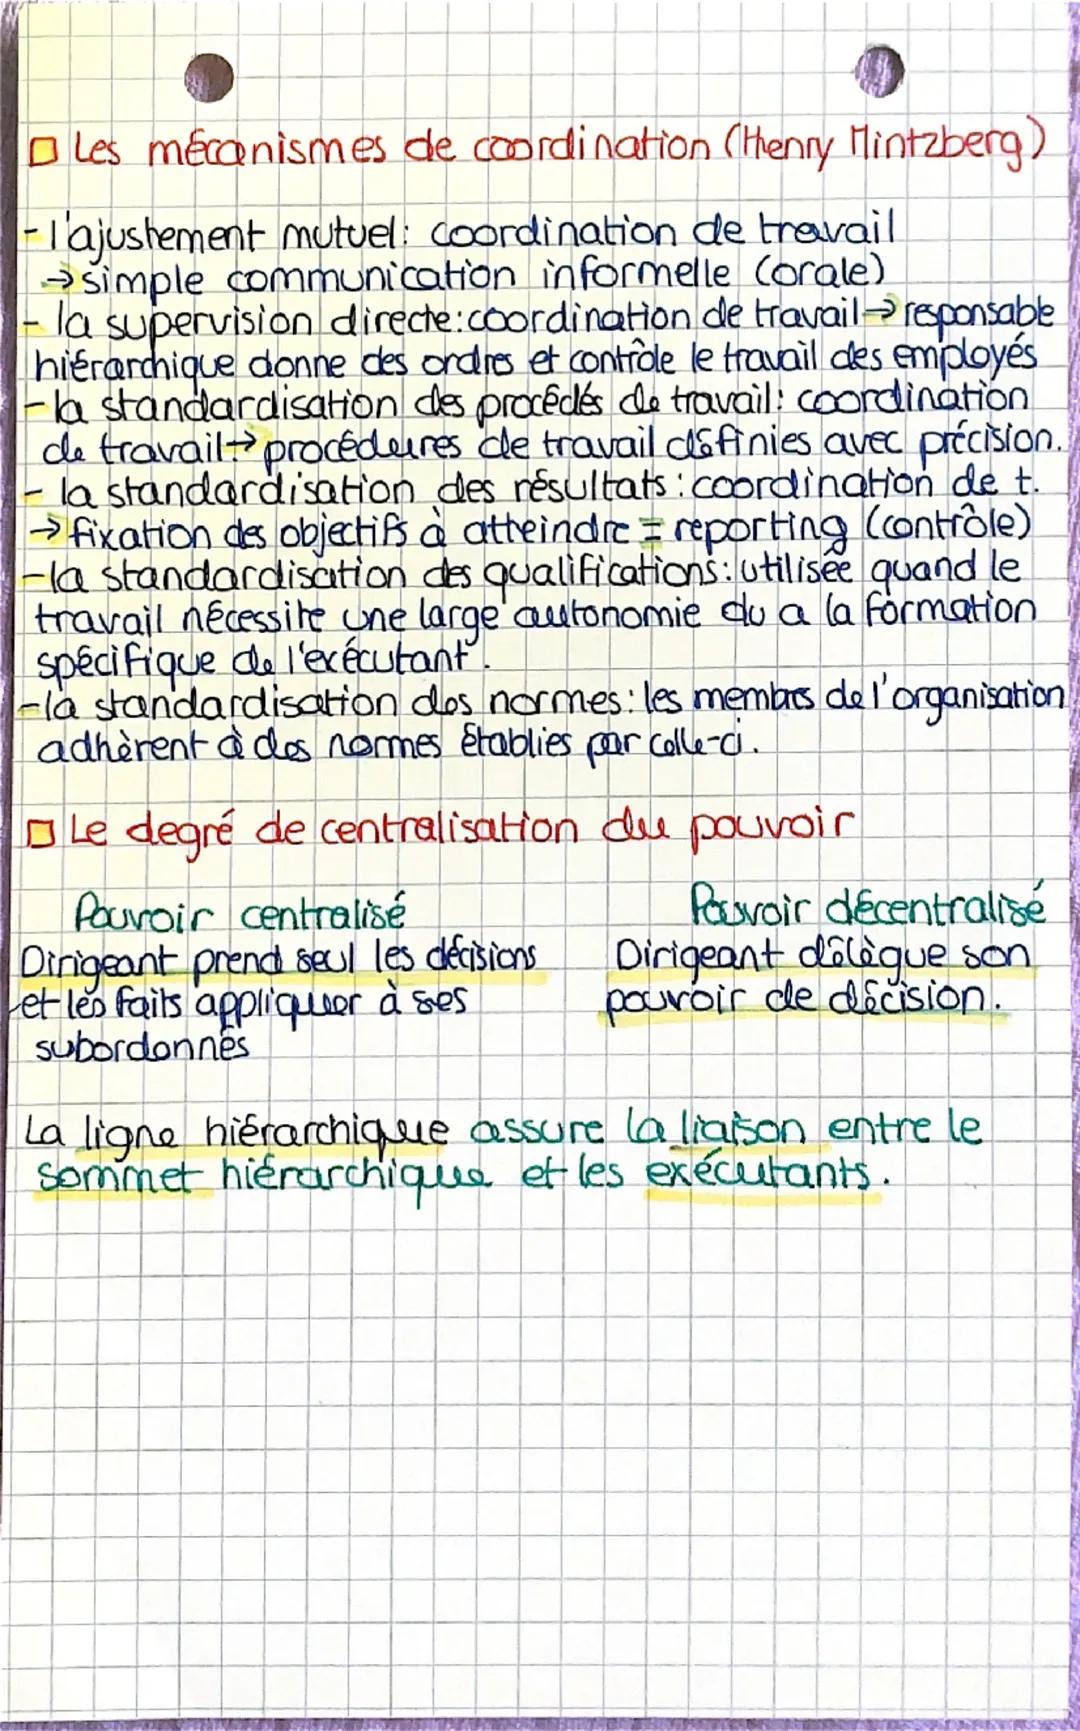 Les mécanismes de coordination (Henry Mintzberg)
- l'ajustement mutuel: coordination de travail
→ simple communication informelle (orale)
- la supervision directe: coordination de travail → responsable
hiérarchique donne des ordres et contrôle le travail des employés
- la standardisation des procédés de travail: coordination
de travail → procédures de travail définies avec précision.
- la standardisation des résultats: coordination de t.
→ fixation des objectifs à atteindre = reporting (contrôle)
- la standardisation des qualifications: utilisée quand le
travail nécessite une large autonomie du a la formation
spécifique de l'exécutant.
- la standardisation des normes: les membres de l'organisation
adhèrent à des normes établies par celle-ci.
Le degré de centralisation du pouvoir
Pouvoir centralisé
Dirigeant prend seul les décisions
et les faits appliquer à ses
subordonnés
Pouvoir décentralisé
Dirigeant délègue son
pouvoir de décision.
La ligne hiérarchique assure la liaison entre le
sommet hiérarchique et les exécutants.